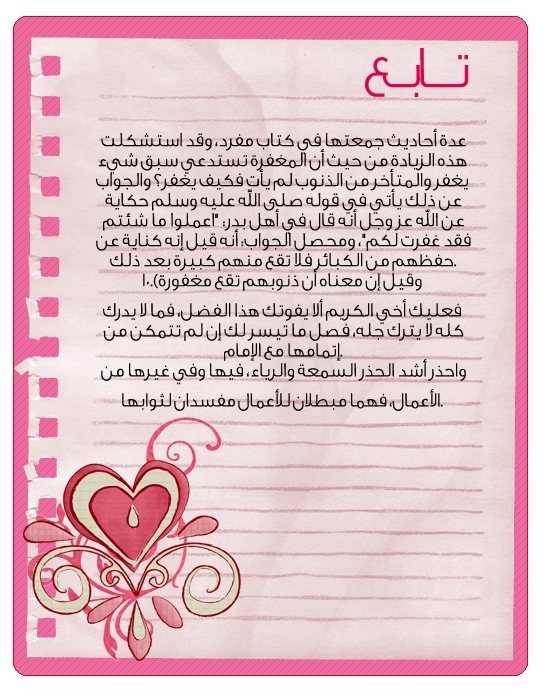 تابع
عدة أحاديث جمعتها في كتاب مفرد، وقد استشكلت
هذه الزيادة من حيث أن المغفرة تستدعي سبق شيء
يغفر والمتأخر من الذنوب لم يأت فكيف يغفر؟ والجواب
عن ذلك يأتي في قوله صلى الله عليه وسلم حكاية
عن الله عز وجل أنه قال في أهل بدر: "اعملوا ما شئتم
فقد غفرت لكم"، ومحصل الجواب: أنه قيل إنه كناية عن
حفظهم من الكبائر فلا تقع منهم كبيرة بعد ذلك.
وقيل إن معناه أن ذنوبهم تقع مغفورة).١٠
فعليك أخي الكريم ألا يفوتك هذا الفضل، فما لا يدرك
كله لا يترك جله، فصل ما تيسر لك إن لم تتمكن من
إتمامها مع الإمام.
واحذر أشد الحذر السمعة والرياء، فيها وفي غيرها من
الأعمال، فهما مبطلان للأعمال مفسدان لثوابها.